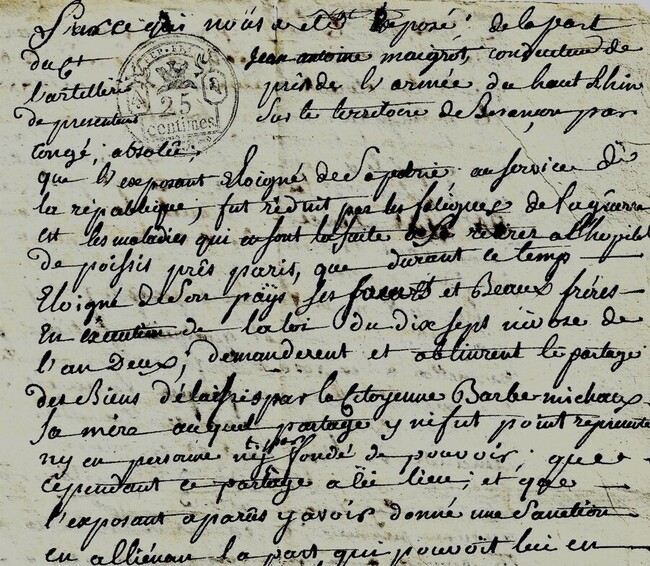 Sur ce qui nous a été Exposé de la part
du Ct Jean antoine maigrot, conducteur de
l'artillerie près de l'armée du haut Rhin
RÉP. FRA.
25
centimes
de present sur le territoire de Besançon par
congé, absolu,
que l'exposant Eloigné de Sa patrie au service de
la république, fut réduit par les fatigues de la guerre
est les maladies qui en font la suite de se retirer a l'hopital
de poissis près paris, que durant ce temp
Eloigné de Son païs ses soeurs et Beaux frères
En exécution de la loi du dix sept nivose de
l'an Deux, demanderent et obtinrent le partage
des Biens délaissés par la Citoyenne Barbe michaux
Sa mère auquel partage y ne fut point représenté
ny en personne ny par fondé de pouvoir; que
cependant ce partage a Eû lieu; et que
l'exposant a parûs y avoir donné une Sanction
en alliénan la part qui pouvoit lui en